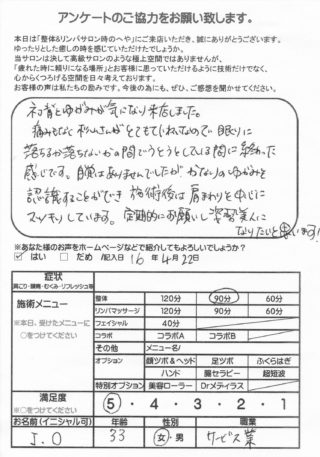 アンケートのご協力をお願い致します。
本日は「整体&リンパサロン時のへや」にご来店いただき、誠にありがとうございます。
ゆったりとした癒しの時を感じていただけたでしょうか。
当サロンは決して高級サロンのような極上空間ではありませんが、
「疲れた時に頼りになる場所」とお客様に思っていただけるように技術だけでなく、
心からくつろげる空間を日々考えております。
お客様の声は私たちの励みです。今後の為にも、ぜひ、ご感想をお聞かせください。
猫背とゆがみが気になり来店しました。
痛みもなく がとてもていねいなので 眠りに
落ちるか落ちないかの間でうとうとしている間に終わった
感じです。 ありませんでしたが かなりのゆがみを
認識することができ 施術後は 肩まわりを中心に
スッキリしています。定期的にお願いし 姿勢美人に
なりたいと思います!
※あなた様のお声をホームページなどで紹介してもよろしいでしょうか?
☑ はい □ だめ /記入日 16 年 4 月 22 日
症状
肩こり・腰痛・むくみ・リフレッシュ等
施術メニュー
※本日、受けたメニューに
○をつけてください
整体 120分 90分 60分
リンパマッサージ 120分 90分 60分
フェイシャル 40分
コラボ コラボA コラボB
その他 メニュー名/
オプション 顔ツボ&ヘッド 足ツボ ふくらはぎ
ハンド 腸セラピー 超短波
特別オプション 美容ローラー Drメディラス
満足度
※○をつけてください
5・4・3・2・1
お名前(イニシャル可) 年齢 性別 職業
I.O 33 女・男 サービス業